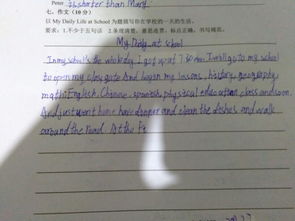 Peter is shorter than Mary.
七、作文(10分)
以 My Daily Life at School 为题描写你在学校的一天的生活。
要求：1.不少于五句话 2.条理清楚，意思连贯，标点正确，书写规范。
My Daily at school
In my school's the I got up at 7 I will go to my school
to open my class And began my lessons, history, geography
math, English, Chinese, spanish, physical education class and soon.
And just went home have danper and clean the dishes and walk
around the road. At the